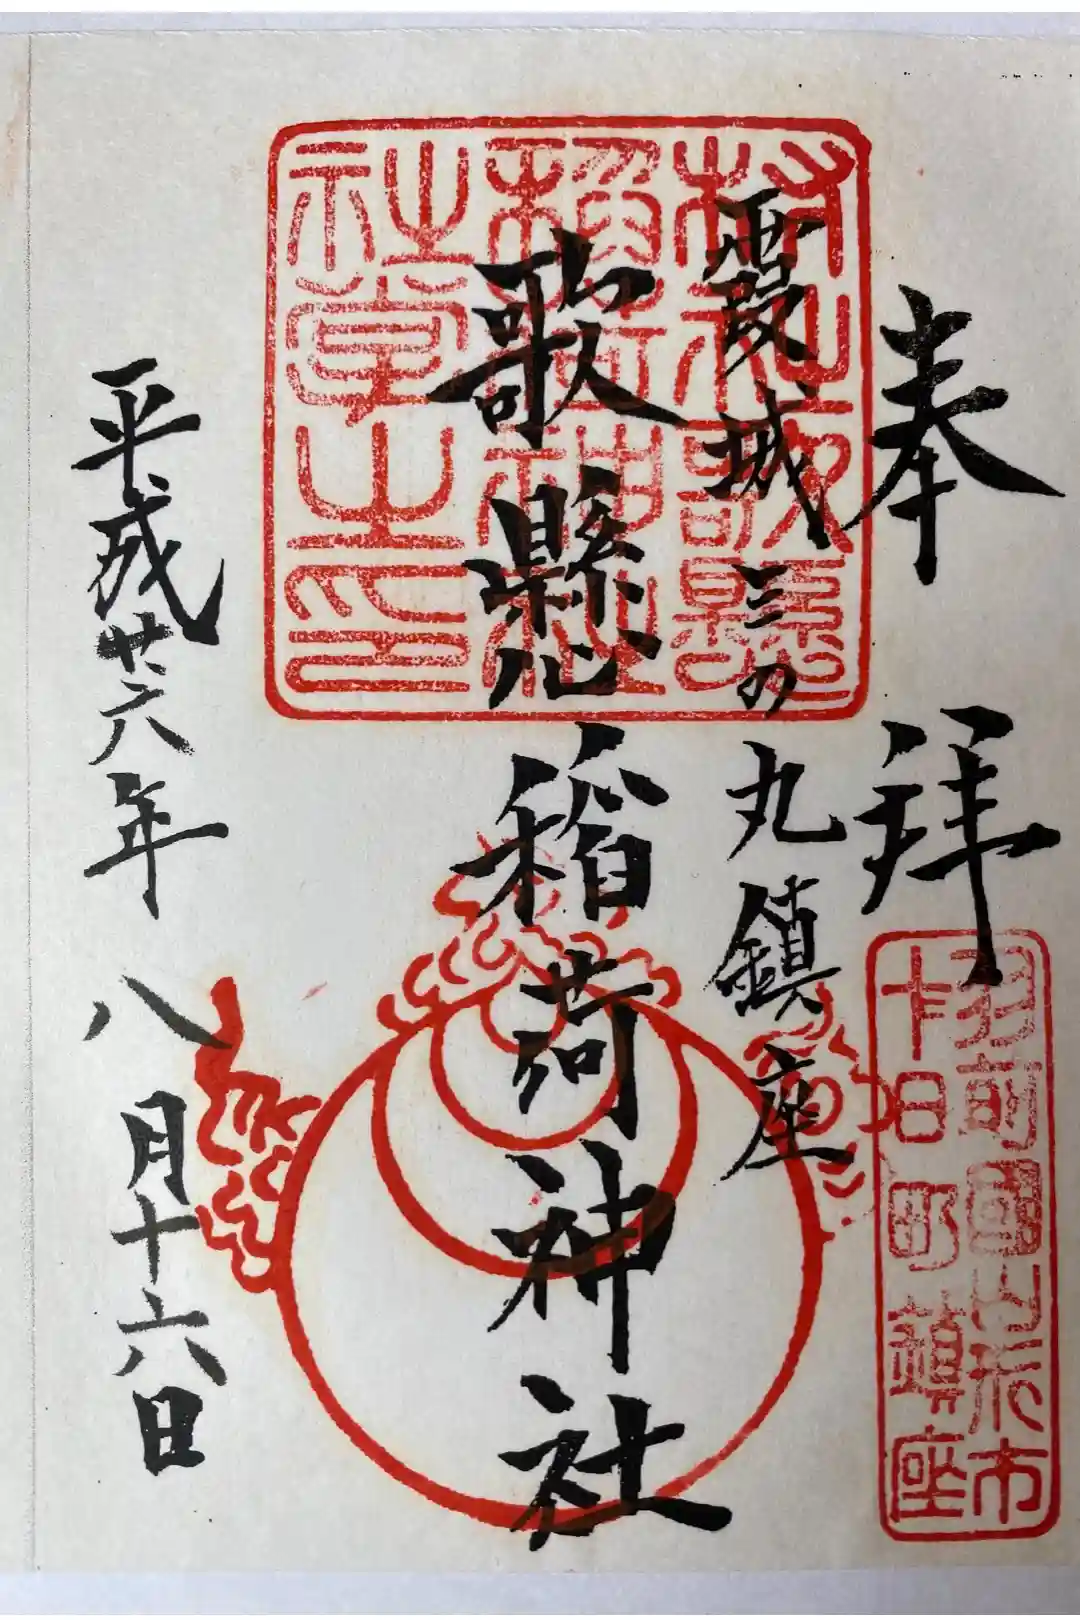 奉拝
羽前國山形市
十日町鎮座
霞城三の丸鎮座
歌懸稲荷神社
村社歌懸
稲荷神社
社掌之印
平成廿六年八月十六日